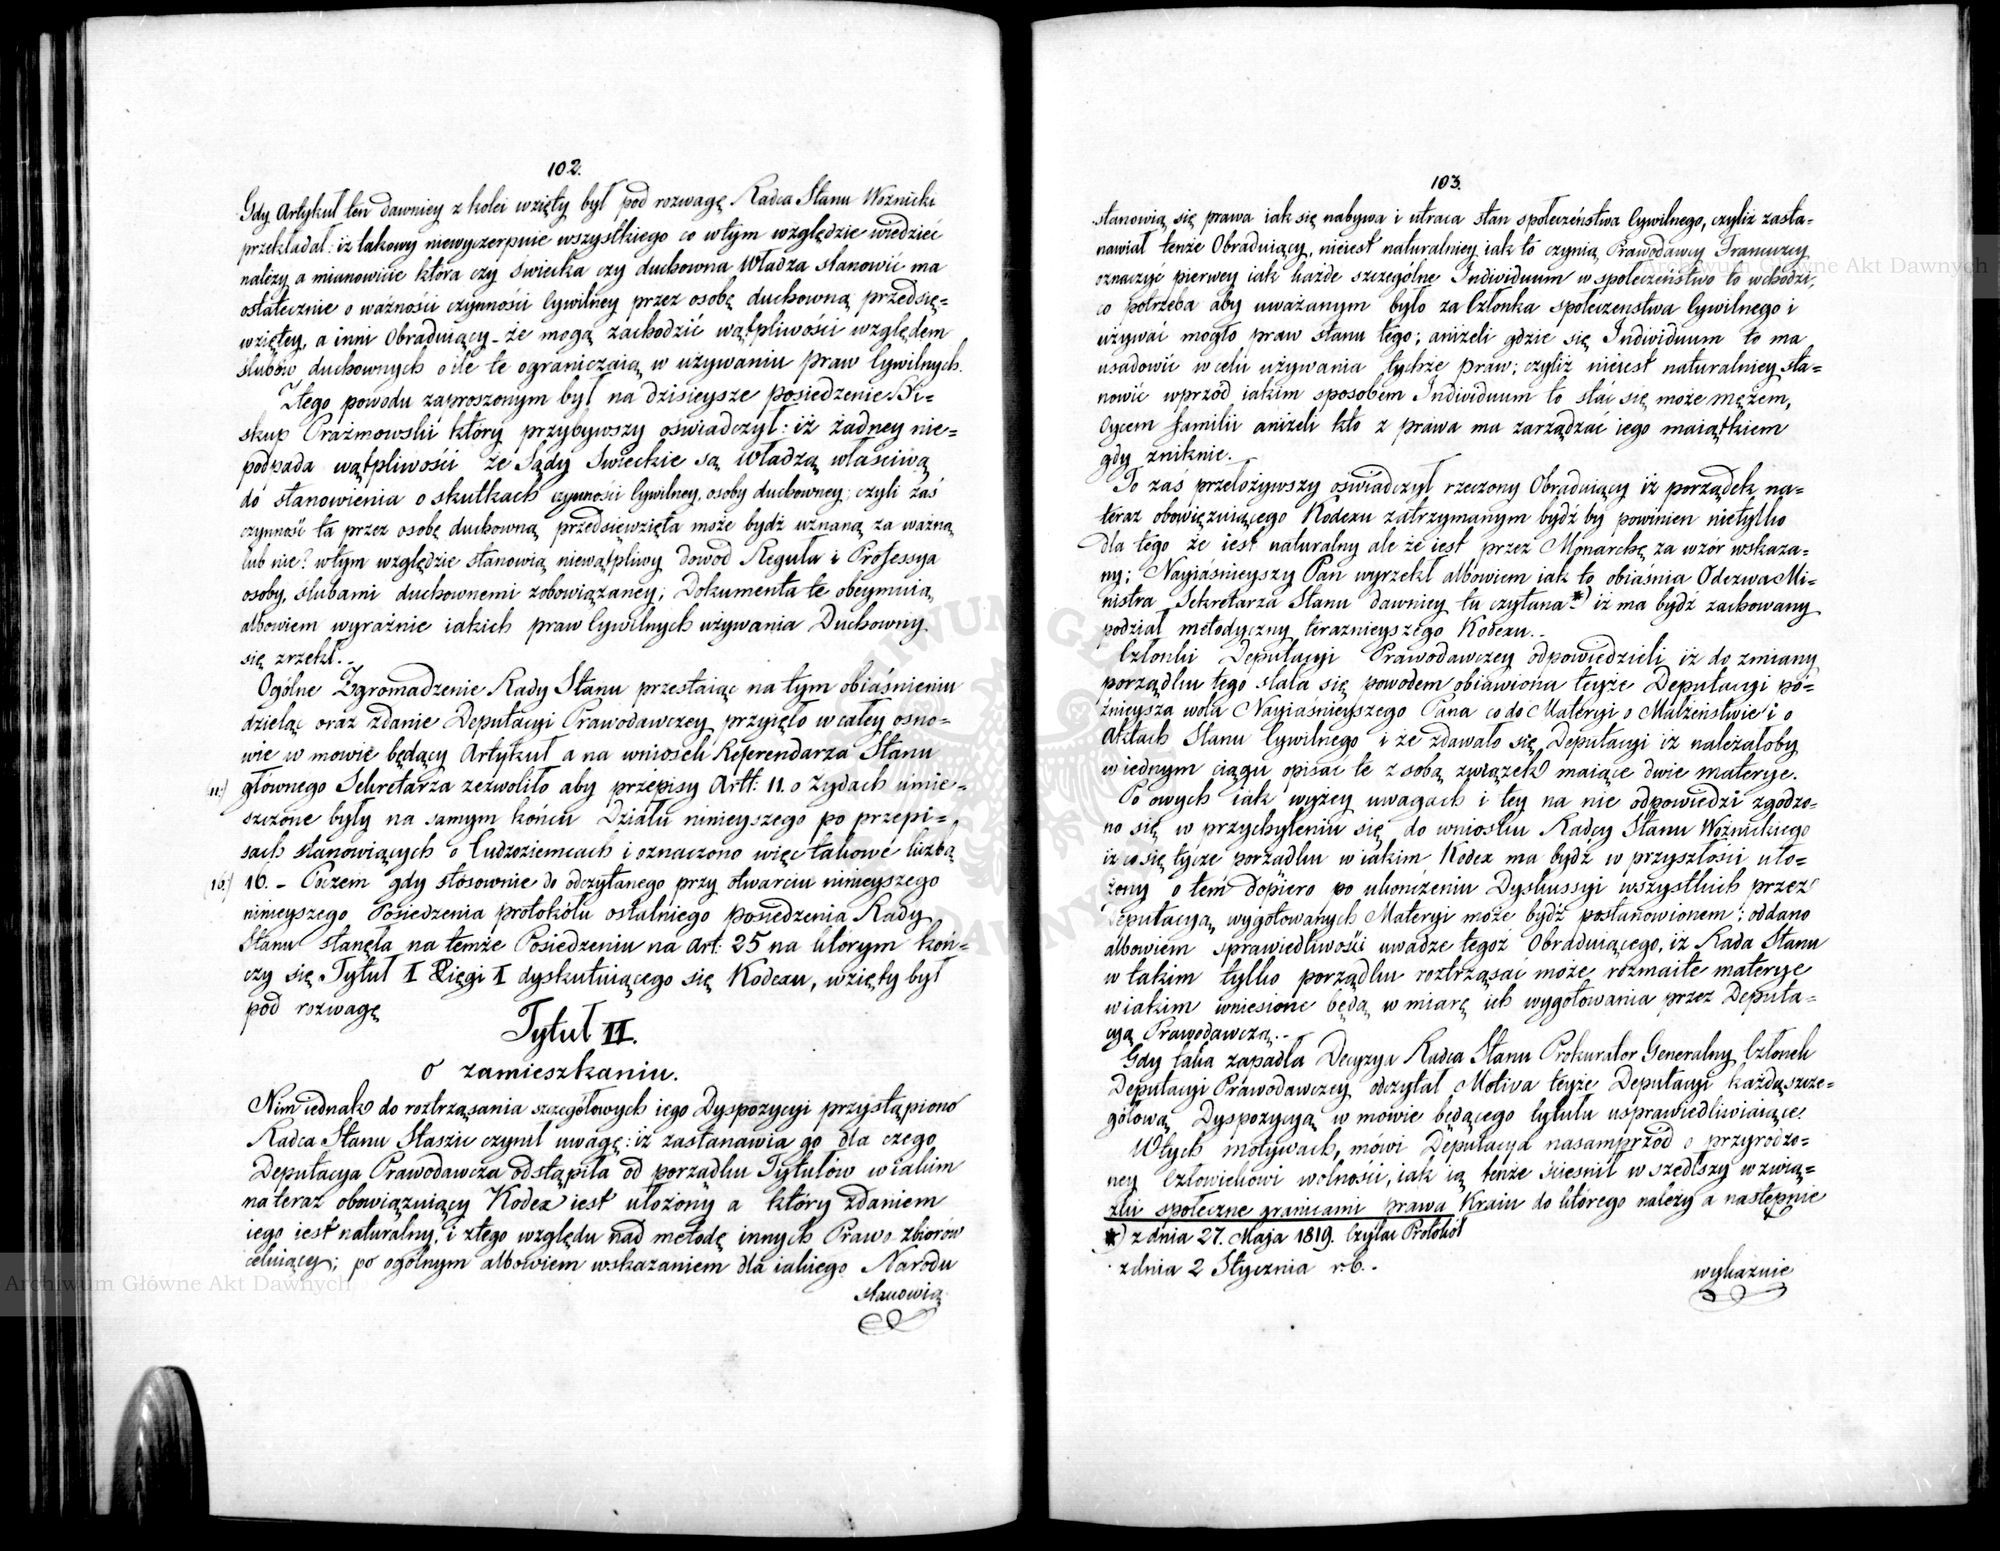 102.
Gdy Artykuł ten dawniey z kolei wzięty był pod rozwagę Radca Stanu Woźnicki
przekładał: iż takowy niewyczerpuie wszystkiego co w tym względzie wiedzieć
należy a mianowicie która czy świecka czy duchowna Władza stanowić ma
ostatecznie o ważności czynności Cywilney przez osobę duchowną przedsię=
wziętey, a inni Obraduiący - że mogą zachodzić wątpliwości względem
ślubów duchownych o ile te ograniczaią w używaniu praw Cywilnych.
Z tego powodu zaproszonym był na dzisieysze posiedzenie Bi=
skup Prażmowski który przybywszy oświadczył: iż żadney nie=
podpada wątpliwości że Sądy Świeckie są Władzą właściwą
do stanowienia o skutkach czynności Cywilney, osoby duchowney; czyli zaś
czynność ta przez osobę duchowną przedsięwzięta może bydź uznaną za ważną
lub nie? w tym względzie stanowią niewątpliwy dowód Reguła i Professya
osoby, ślubami duchownemi zobowiązaney; Dokumenta te obeymuią
albowiem wyraźnie iakich praw Cywilnych używania Duchowny
się zrzekł. -
Ogólne Zgromadzenie Rady Stanu przestaiąc na tym obiaśnieniu
dzieląc oraz zdanie Deputacyi Prawodawczey przyięło w całey osno=
wie w mowie będący Artykuł a na wniosek Referendarza Stanu
11.) głównego Sekretarza zezwoliło aby przepisy Artt: 11. o Żydach umie=
szczone były na samym końcu Działu ninieyszego po przepi=
sach stanowiących o Cudzoziemcach i oznaczono więc takowe liczbą
16.) 16. - Poczem gdy stosownie do odczytanego przy otwarciu ninieyszego
ninieyszego Posiedzenia protokółu ostatniego posiedzenia Rady
Stanu stanęła na temże Posiedzeniu na Art: 25 na którym koń=
czy się Tytuł I Xięgi I dyskutuiącego się Kodexu, wzięty był
pod rozwagę
Tytuł II.
o zamieszkaniu.
Nim iednak do roztrząsania szczegółowych iego Dyspozycyi przystąpiono
Radca Stanu Staszic czynił uwagę: iż zastanawia go dla czego
Deputacya Prawodawcza odstąpiła od porządku Tytułów w iakim
na teraz obowiązuiący Kodex iest ułożony a który zdaniem
iego iest naturalny, i z tego względu nad metodę innych Prawo-zbiorów
celuiący; po ogólnym albowiem wskazaniem dla iakiego Narodu
stanowią
103.
stanowią się prawa iak się nabywa i utraca stan społeczeństwa Cywilnego, czyliż zasta=
nawiał tenże Obraduiący, nieiest naturalniey iak to czynią Prawodawcy Francuzcy
oznaczyć pierwey iak każde szczególne Individuum w społeczeństwo to wchodzi,
co potrzeba aby uważanym było za Członka społeczenstwa Cywilnego i
używać mogło praw stanu tego; aniżeli gdzie się Individuum to ma
usadowić w celu używania tychże praw; czyliż nieiest naturalniey sta=
nowić wprzód iakim sposobem Individuum to stać się może mężem,
Oycem familii aniżeli kto z prawa ma zarządzać iego maiątkiem
gdy zniknie. -
To zaś przełożywszy oświadczył rzeczony Obraduiący iż porządek na=
teraz obowięzuiącego Kodexu zatrzymanym bydź by powinien nietylko
dla tego że iest naturalny ale że iest przez Monarchę za wzór wskaza=
ny; Nayiaśnieyszy Pan wyrzekł albowiem iak to obiaśnia Odezwa Mi=
nistra Sekretarza Stanu dawniey tu czytana *) iż ma bydź zachowany
podział metodyczny terazneyszego Kodexu. -
Członki Deputacyi Prawodawczey odpowiedzieli iż do zmiany
porządku tego stała się powodem obiawiona teyże Deputacyi pó=
źnieysza wola Nayiaśnieyszego Pana co do Materyi o Małżeństwie i o
Aktach Stanu Cywilnego i że zdawało się Deputacyi iż należałoby
w iednym ciągu opisać te z sobą związek maiące dwie materye.
Po owych iak wyżey uwagach i tey na nie odpowiedzi zgodzo=
no się w przychyleniu się do wniosku Radcy Stanu Woźnickiego
iż co się tycze porządku w iakim Kodex ma bydź w przyszłości uło=
żony o tém dopiero po ukończeniu Dyskussyi wszystkich przez
Deputacyą, wygotowanych Materyi może bydź postanowionem; oddano
albowiem sprawiedliwość uwadze tegoż Obraduiącego, iż Rada Stanu
w takim tylko porządku roztrząsać może rozmaite materye
w iakim wniesione będą w miarę ich wygotowania przez Deputa=
cyą Prawodawczą. -
Gdy taka zapadła Decyzya Radca Stanu Prokurator Generalny Członek
Deputacyi Prawodawczey odczytał Motiva teyże Deputacyi każdą szcze=
gółową Dyspozycyą w mowie będącego tytułu usprawiedliwiaiące
W tych motywach, mówi Deputacya nasamprzód o przyrodzo=
ney Człowiekowi wolności, iak ią tenże ścieśnił wszedłszy w zwią=
zki społeczne granicami prawa Kraiu do którego należy a następnie
*) z dnia 27. Maja 1819. Czytać Protokół
z dnia 2 Stycznia r. b. -
wykazuie
Archiwum Główne Akt Dawnych
Archiwum Główne Akt Dawnych